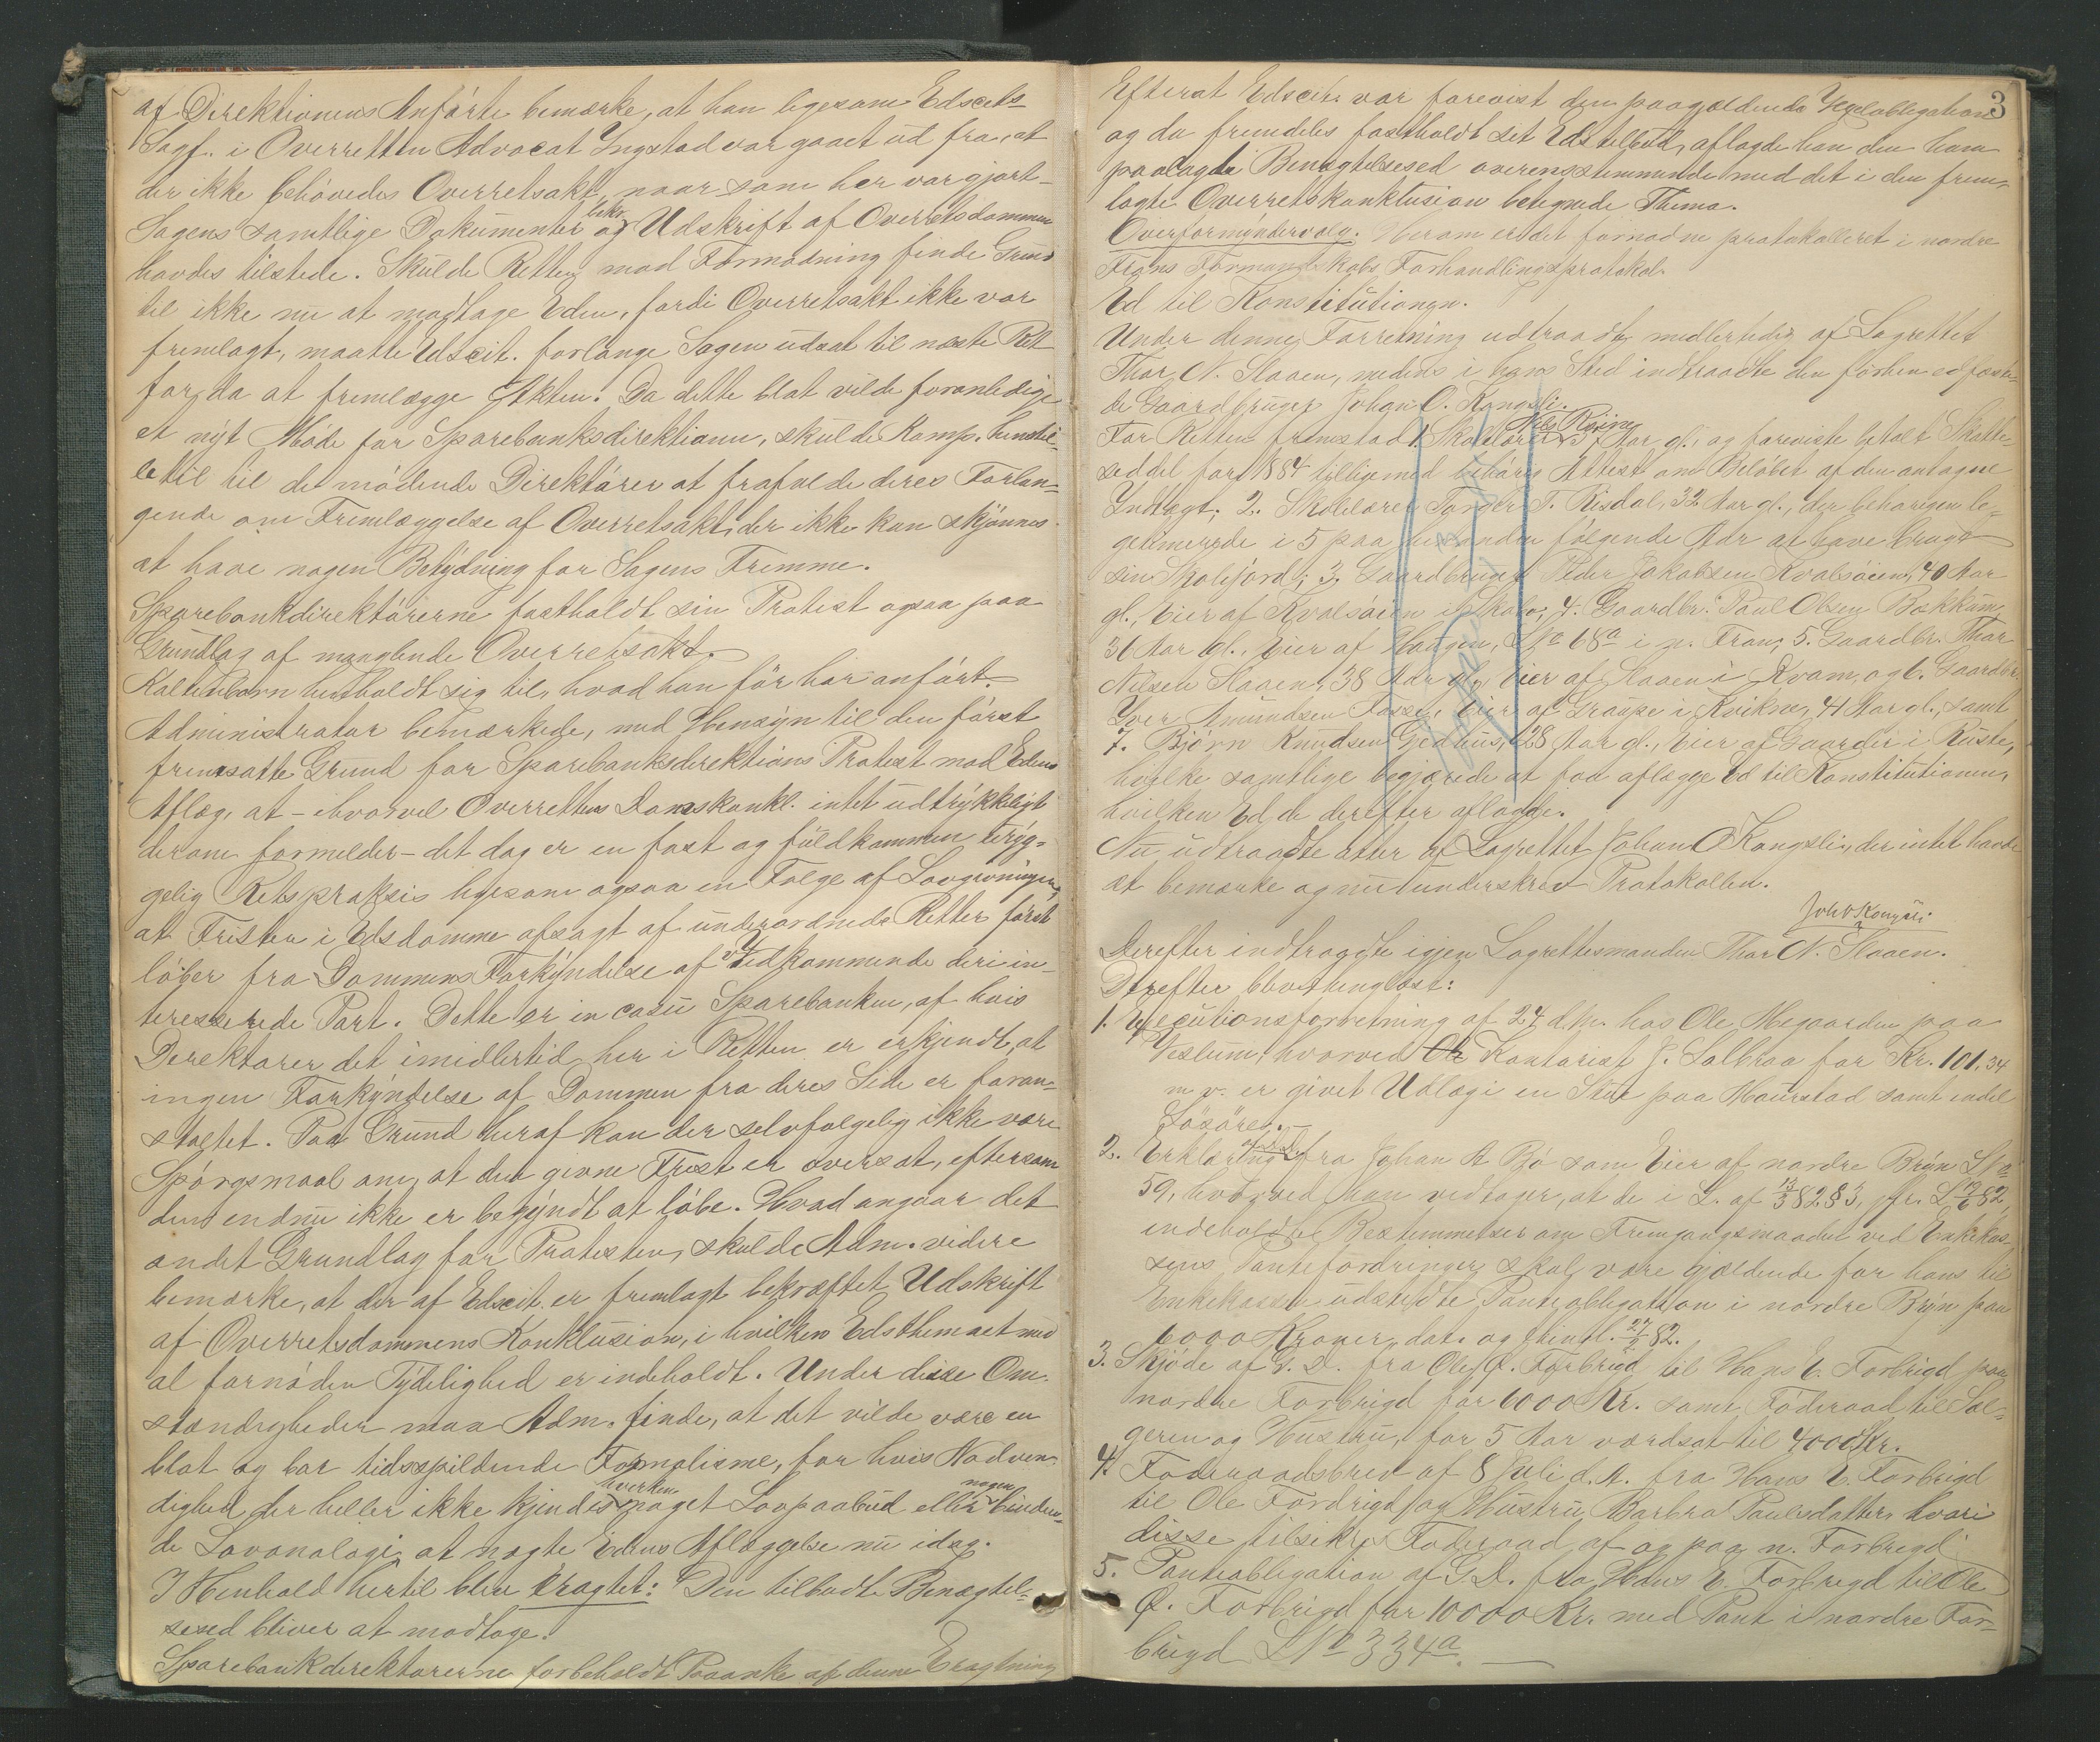 af Direktionens Anførte bemærke, at han ligesom Edscits
Sagf. i Overretten Advocat Yngstad var gaaet ud fra, at
der ikke behøvedes Overretsakt, naar som her var gjort
Sagens samtlige Dokumenter og bekr. Udskrift af Overretsdommen
havdes tilstede. Skulde Retten mod Formodning finde Grund
til ikke nu at modtage Eden, fordi Overretsakt ikke var
fremlagt, maatte Edscit. forlange Sagen udsat til næste Ret
for da at fremlægge Akten. Da dette blot vilde foranledige
et nyt Møde for Sparebanksdirektionen, skulde Komp. henstil-
le til de mødende Direktører at frafalde deres Forlan-
gende om Fremlæggelse af Overretsakt, der ikke kan skjønnes
at have nogen Betydning for Sagens Fremme.
Sparebankdirektørerne fastholdt sin Protest ogsaa paa
Grundlag af manglende Overretsakt.
Kaltenborn henholdt sig til, hvad han før har anført.
Administrator bemærkede, med Hensyn til den først
fremsatte Grund for Sparebanksdirektions Protest mod Edens
Aflæg, at - ihvorvel Overrettens Domskonkl. intet udtrykkeligt
derom formelder - det dog er en fast og fuldkommen tryg-
gelig Retspraksis ligesom ogsaa en Følge af Lovgivningen,
at Fristen i Edsdomme afsagt af underordnede Retter først
løber fra Dommens Forkyndelse af Vedkommende deri in-
teresserede Part. Dette er in casu Sparebanken, af hvis
Direktører det imidlertid her i Retten er erkjendt, at
ingen Forkyndelse af Dommen fra deres Side er foran-
staltet. Paa Grund heraf kan der selvfølgelig ikke være
Spørgsmaal om, at den givne Frist er oversat, eftersom
den endnu ikke er begyndt at løbe. Hvad angaar det
andet Grundlag for Protesten, skulde Adm. videre
bemærke, at der af Edscit. er fremlagt bekræftet Udskrift
af Overretsdommens Konklusion, i hvilken Edsthemaet med
al fornøden Tydelighed er indeholdt. Under disse Om-
stændigheder maa Adm. finde, at det vilde være en
blot og bar tidsspildende Formalisme, for hvis Nødven-
dighed der heller ikke kjendes hverken noget Lovpaabud eller nogen binden-
de Lovanalogi, at nægte Edens Aflæggelse nu idag.
I Henhold hertil blev eragtet: Den tilbudte Benægtel-
sesed bliver at modtage.
Sparebankdirektørerne forbeholdt Paaanke af denne Eragtning
3
Efterat Edscit. var forevist den paagjældende Vexelobligation
og da fremdeles fastholdt sit Edstilbud, aflagde han den ham
paalagte Benægtelsesed overensstemmende med det i den frem-
lagte Overretskonklusion betegnede Thema.
Overformyndervalg. Herom er det fornødne protokolleret i nordre
Frons Formandskabs Forhandlingsprotokol.
Ed til Konstitutionen.
Under denne Forretning udtraadte midlertidig af Lagrettet
Thor N. Slaaen, medens i hans Sted indtraadte den forhen edfæste-
de Gaardbruger Johan O. Kongsli.
For Retten fremstod 1. Skolelærer Nils Rønne Aar gl., og foreviste betalt Skatte-
seddel for 1884 tilligemed behørig Attest om Beløbet af den antagne
Indtægt; 2. Skolelærer Torger T. Risdal, 32 Aar gl., der behørigen le-
gitimerede i 5 paa hinanden følgende Aar at have brugt
sin Skolejord; 3. Gaardbruger Peder Jakobsen Kvalsøien, 40 Aar
gl., Eier af Kvalsøien i Skabo; 4. Gaardbr. Paul Olsen Bækkum
36 Aar gl., Eier af Haugen, LNo 68a i n. Fron; 5. Gaardbr. Thor
Nilsen Slaaen, 38 Aar gl., Eier af Slaaen i Kvam, og 6. Gaardbr.
Iver Amundsen Fosse, Eier af Graupe i Kvikne, 41 Aar gl., samt
7. Bjørn Knudsen Gjedhus, 28 Aar gl., Eier af Gaarder i Ruste,
hvilke samtlige begjærede at faa aflægge Ed til Konstitutionen,
hvilken Ed de derefter aflagde.
Nu udtraadte atter af Lagrettet Johan O Kongsli, der intet havde
at bemærke og nu underskrev Protokollen.
Joh O Kongsli
Derefter indtraadte igjen Lagrettesmanden Thor N. Slaaen.
Derefter blev thinglæst:
1. Executionsforretning af 24 d.M. hos Ole Megaarden paa
Veslum, hvorved Kontorist J. Solbraa for Kr. 101,34
m.v. er givet Udlæg i en Stue paa Haurstad samt endel
Løsøre.
2. Erklæring fra Johan A Bø som Eier af nordre Bryn LNo
59, hvorved han vedtager, at de i L. af 13/3 82 § 3, jfr. L 13/6 82,
indeholdte Bestemmelser om Fremgangsmaaden ved Enkekas-
sens Pantefordringer skal være gjældende for hans til
Enkekassen udstedte Panteobligation i nordre Bryn paa
6000 Kroner, dat. og thingl. 27/2 82.
3. Skjøde af G. D. fra Ole Q. Forbrigd til Hans E. Forbrigd paa
nordre Forbrigd for 6000 Kr. samt Føderaad til Sæl-
geren og Hustru, for 5 Aar værdsat til 4000 Kr.
4. Føderaadsbrev af 8 Juli d. A. fra Hans E. Forbrigd
til Ole Fordrigd og Hustru Barbra Paulsdatter, hvori
disse tilsikres Føderaad af og paa n. Forbrigd
5. Panteobligation af G.D. fra Hans E. Forbrigd til Ole
Q. Forbrigd for 10000 Kr. med Pant i nordre For-
brigd LNo 334a.